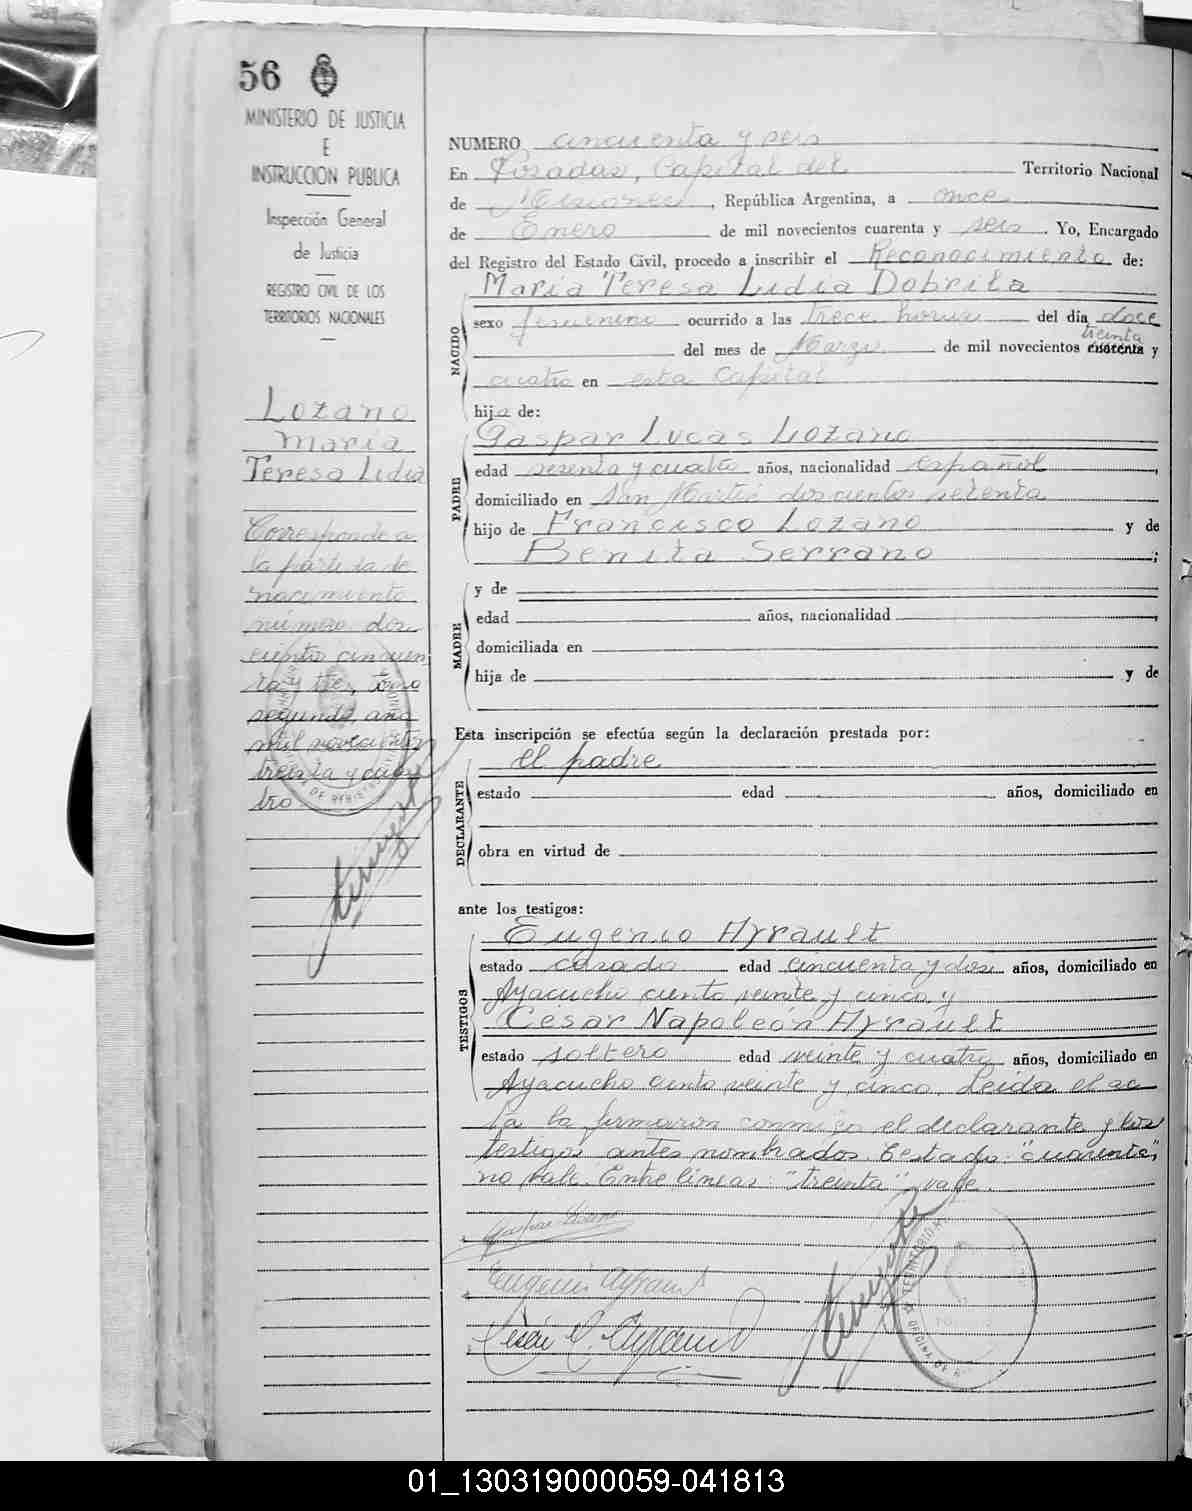 56
MINISTERIO DE JUSTICIA
E
INSTRUCCION PUBLICA
Inspección General
de Justicia
REGISTRO CIVIL DE LOS
TERRITORIOS NACIONALES
Lozano
María
Teresa Lidia
Corresponde a
la partida de
nacimiento
número dos
ciento cincuen
ta y tres, tomo
segundo, año
mil novecientos
treinta y cua
tro
NUMERO cincuenta y seis
En Posadas, Capital del Territorio Nacional
de Misiones, República Argentina, a once
de Enero de mil novecientos cuarenta y seis. Yo, Encargado
del Registro del Estado Civil, procedo a inscribir el Reconocimiento de:
NACIDO
María Teresa Lidia Dobrila
sexo femenino ocurrido a las trece horas del día doce
treinta
del mes de Marzo de mil novecientos cuarenta y
cuatro en esta Capital
hija de:
PADRE
Gaspar Lucas Lozano
edad sesenta y cuatro años, nacionalidad español,
domiciliado en San Martín doscientos setenta
hijo de Francisco Lozano y de
Benita Serrano;
MADRE
y de
edad años, nacionalidad,
domiciliada en
hija de y de
Esta inscripción se efectúa según la declaración prestada por:
DECLARANTE
el padre
estado edad años, domiciliado en
obra en virtud de
ante los testigos:
TESTIGOS
Eugenio Ayrault
estado casado edad cincuenta y dos años, domiciliado en
Ayacucho ciento veinte y cinco y
Cesar Napoleón Ayrault
estado soltero edad veinte y cuatro años, domiciliado en
Ayacucho ciento veinte y cinco. Leída el ac
ta la firmaron conmigo el declarante y los
testigos antes nombrados. Testado: "cuarenta",
no vale. Entre lineas: "treinta" vale.
Gaspar Lozano
Eugenio Ayrault
Cesar N. Ayrault
01_130319000059-041813